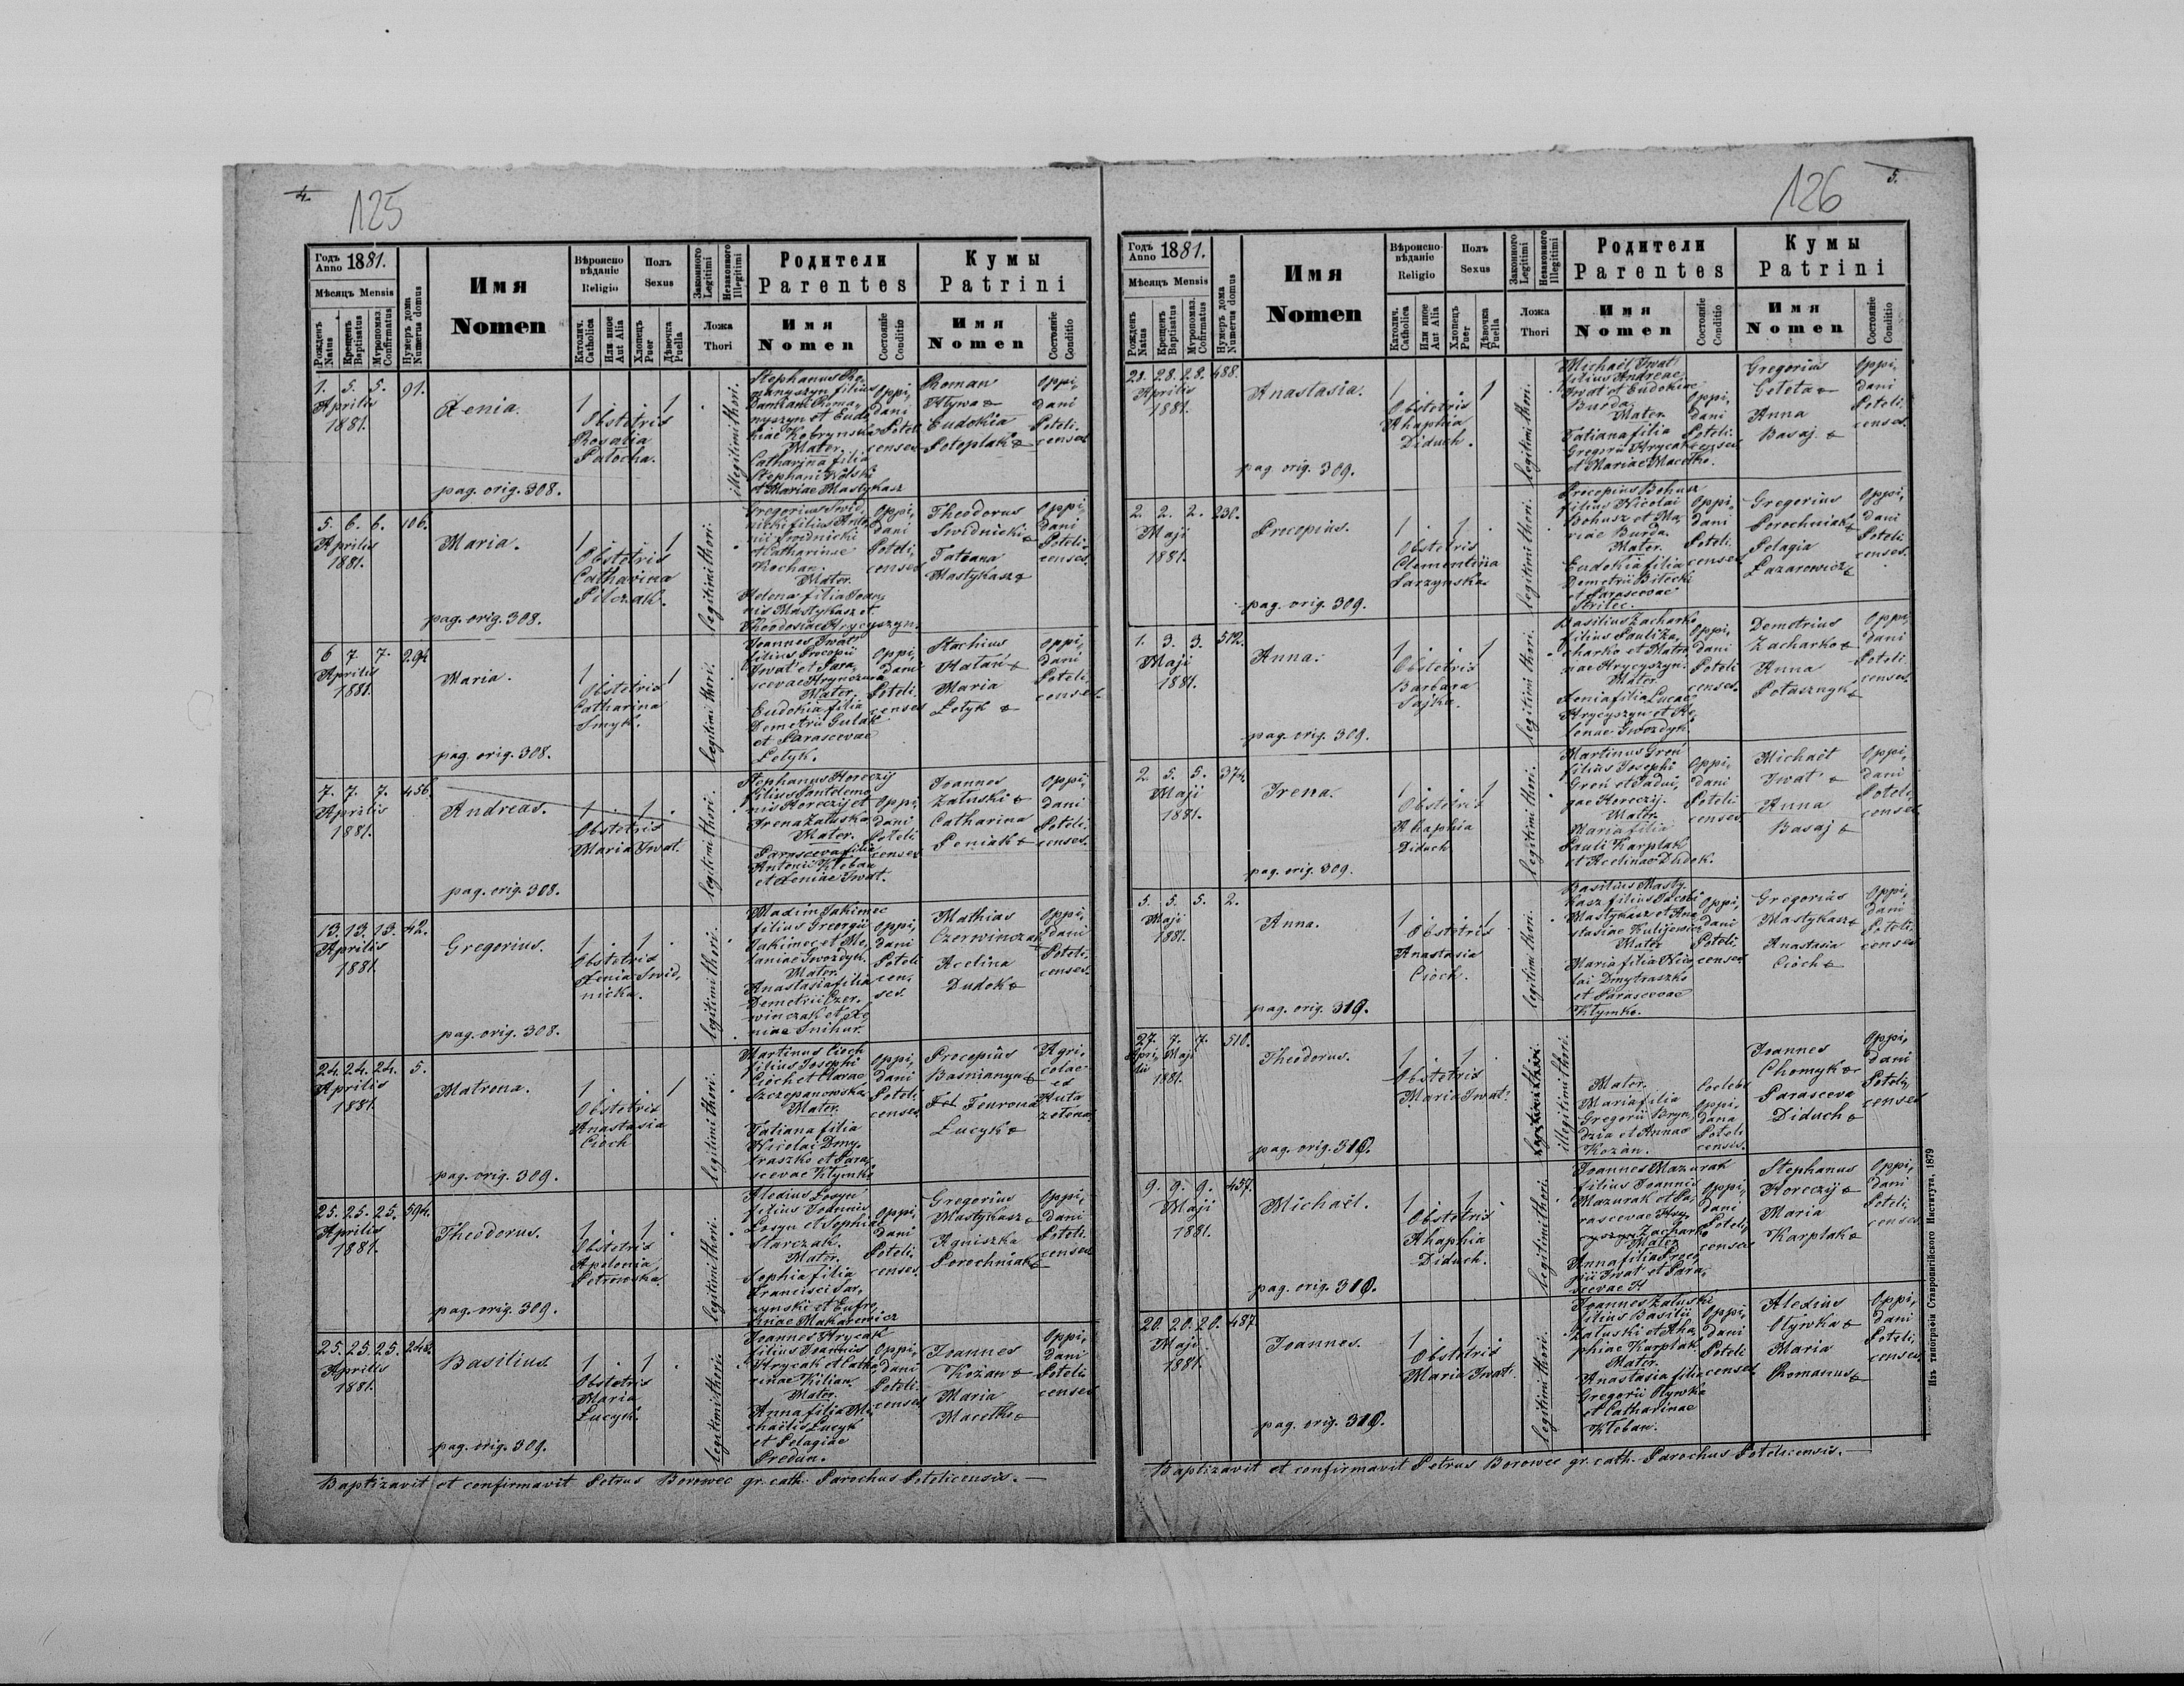 4.
125
Годъ Anno 1881.
Мѣсяцъ Mensis
Рожденъ Natus
Крещенъ Baptisatus
Муропомаз. Confirmatus
Нумеръ дома Numerus domus
Имя
Nomen
Вѣроисповѣданіе
Religio
Католич. Catholica
Или иное Aut Alia
Полъ
Sexus
Хлопецъ Puer
Дѣвочка Puella
Законного Legitimi
Незаконного Illegitimi
Ложа
Thori
Родители
Parentes
Имя
Nomen
Состояніе
Conditio
Кумы
Patrini
Имя
Nomen
Состояніе
Conditio
1. 5. 5. 91.
Aprilis
1881.
Xenia.
1 . . 1
Obstetrix
Rosalia
Patocha.
pag. orig. 308.
illegitimi thori.
Stephanus Ro-
manyszyn filius
Damiani Roma-
nyszyn et Eudo-
kiae Kobrynska
Mater.
Catharina filia
Stephani
et Mariae Mastykasz
Oppi-
dani
Poteli-
censes
Roman
Hlywa +
Eudokia
Potoplak +
Oppi-
dani
Poteli-
censes
5. 6. 6. 106.
Aprilis
1881.
Maria.
1 . . 1
Obstetrix
Catharina
Pilczak.
pag. orig. 308.
legitimi thori.
Gregorius Swid-
nicki filius Anto-
nii Swidnicki
et Catharinae
Kochan.
Mater.
Helena filia Ioan-
nis Mastykasz et
Theodosiae Hrycyszyn.
Oppi-
dani
Poteli-
censes
Theodorus
Swidnicki +
Tatiana
Mastykasz +
Oppi-
dani
Poteli-
censes.
6 7. 7. 294
Aprilis
1881.
Maria.
1 . . 1
Obstetrix
Catharina
Smyk.
pag. orig. 308.
legitimi thori.
Ioannes Iwat
filius Procopii
Iwat et Para-
scevae Hrynczusa
Mater.
Eudokia filia
Demetrii Gulak
et Parascevae
Lotyk.
Oppi-
dani
Poteli-
censes
Stachius
Hatan +
Maria
Lotyk +
Oppi-
dani
Poteli-
censes
7. 7. 7. 456.
Aprilis
1881.
Andreas.
1 . 1 .
Obstetrix
Maria Iwat.
pag. orig. 308.
legitimi thori.
Stephanus Horeczij
filius Panteleme-
nis Horeczij et
Irena Załuska
Mater.
Parasceva filia
Antonii Kleban
et Xeniae Iwat.
Oppi-
dani
Poteli-
censes
Ioannes
Załuski +
Catharina
Peniak +
Oppi-
dani
Poteli-
censes.
13. 13. 13. 42.
Aprilis
1881.
Gregorius.
1 . 1 .
Obstetrix
Xenia Swid-
nicka.
pag. orig. 308.
legitimi thori.
Maxim Jakimec
filius Georgii
Jakimec et Me-
laniae Gwozdyk.
Mater.
Anastasia filia
Demetrii Czer-
winczak et Xe-
niae Snihur.
Oppi-
dani
Poteli-
cen-
ses.
Mathias
Czerwinczak
Acelina
Dudok +
Oppi-
dani
Poteli-
censes.
24. 24. 24. 5.
Aprilis
1881.
Matrona.
1 . . 1
Obstetrix
Anastasia
Cioch
pag. orig. 309.
legitimi thori.
Martinus Cioch
filius Josephi
Cioch et Clarae
Szczepanowska
Mater.
Tatiana filia
Nicolai Dmy-
traszko et Para-
scevae Klymko
Oppi-
dani
Poteli-
censes
Procopius
Basnianyn +
Fevrona
Lucyk +
Agri-
colae
ex
Huta
zelona.
25. 25. 25. 594.
Aprilis
1881.
Theodorus.
1 . 1 .
Obstetrix
Apolonia
Petrowska.
pag. orig. 309.
legitimi thori.
Alexius Losyn
filius Ioannis
Losyn et Sophia
Starczak.
Mater.
Sophia filia
Francisci Sar-
zynski et Eufro-
sinae Makarewicz
Oppi-
dani
Poteli-
censes.
Gregorius
Mastykasz +
Agniszka
Porochniak +
Oppi-
dani
Poteli-
censes
25. 25. 25. 248.
Aprilis
1881.
Basilius
1 . 1 .
Obstetrix
Maria
Lucyk.
pag. orig. 309.
legitimi thori.
Ioannes Hrycak
filius Ioannis
Hrycak et Catha-
rinae Kilian.
Mater.
Anna filia Mi-
chaëlis Lucyk
et Pelagiae
Predun.
Oppi-
dani
Poteli-
censes
Ioannes
Kożan +
Maria
Macelko +
Oppi-
dani
Poteli-
censes
Baptizavit et confirmavit Petrus Borowec gr. cath. Parochus Potelicensis. —
126
5.
Годъ Anno 1881.
Мѣсяцъ Mensis
Рожденъ Natus
Крещенъ Baptisatus
Муропомаз. Confirmatus
Нумеръ дома Numerus domus
Имя
Nomen
Вѣроисповѣданіе
Religio
Католич. Catholica
Или иное Aut Alia
Полъ
Sexus
Хлопецъ Puer
Дѣвочка Puella
Законного Legitimi
Незаконного Illegitimi
Ложа
Thori
Родители
Parentes
Имя
Nomen
Состояніе
Conditio
Кумы
Patrini
Имя
Nomen
Состояніе
Conditio
28. 28. 28. 488.
Aprilis
1881.
Anastasia.
1 . . 1
Obstetrix
Ahaphia
Diduch.
pag. orig. 309.
legitimi thori.
Michaël Iwat
filius Andreae
Iwat et Eudokiae
Burda.
Mater.
Tatiana filia
Gregorii Hrycak
et Mariae Macelko.
Oppi-
dani
Poteli-
censes
Gregorius
Geleta +
Anna
Basaj +
Oppi-
dani
Poteli-
censes.
2. 2. 2. 230.
Maji
1881.
Procopius.
1 . 1 .
Obstetris
Clementina
Sarzynska
pag. orig. 309.
legitimi thori.
Procopius Bohusz
filius Nicolai
Bohusz et Ma-
riae Burda.
Mater.
Eudokia filia
Demetrii Bilecki
et Parascevae
Strilec.
Oppi-
dani
Poteli-
censes
Gregorius
Porochniak +
Pelagia
Lazarewicz +
Oppi-
dani
Poteli-
censes.
1. 3. 3. 512.
Maji
1881.
Anna.
1 . . 1
Obstetrix
Barbara
Sajka.
pag. orig. 309.
legitimi thori.
Basilius Zacharko
filius Pauli Za-
charko et Matro-
nae Hrycyszyn.
Mater
Xenia filia Lucae
Hrycyszyn et He-
lenae Gwozdyk.
Oppi-
dani
Poteli-
censes.
Demetrius
Zacharko +
Anna
Potasznyk +
Oppi-
dani
Poteli-
censes.
2. 5. 5. 374.
Maji
1881.
Irena.
1 . . 1
Obstetrix
Ahaphia
Diduch
pag. orig. 309.
legitimi thori.
Martinus Gren
filius Josephi
Gren et Jadwi-
gae Horeczij.
Mater.
Maria filia
Pauli Karplak
et Acelinae Dudok.
Oppi-
dani
Poteli-
censes
Michaël
Iwat +
Anna
Basaj +
Oppi-
dani
Poteli-
censes
5. 5. 5. 2.
Maji
1881.
Anna.
1 . . 1
Obstetrix
Anastasia
Cioch.
pag. orig. 310.
legitimi thori.
Basilius Masty-
kasz filius Jacobi
Mastykasz et Ana-
stasiae Kulijewicz
Mater
Maria filia Nico-
lai Dmytraszko
et Parascevae
Klymko.
Oppi-
dani
Poteli-
censes
Gregorius
Mastykasz +
Anastasia
Cioch +
Oppi-
dani
Poteli-
censes
27. 7. 7. 510.
Apri- Maji
lis
1881.
Theodorus.
1 . 1 .
Obstetrix
Maria Iwat.
pag. orig. 310.
illegitimi thori.
Mater.
Maria filia
Gregorii Bryn-
dzia et Annae
Kozan.
Coelebs
Oppi-
dana
Poteli-
censis.
Ioannes
Chomyk +
Parasceva
Diduch +
Oppi-
dani
Poteli-
censes
9. 9. 9. 457.
Maji
1881.
Michaël.
1 . 1 .
Obstetrix
Ahaphia
Diduch.
pag. orig. 310.
legitimi thori.
Ioannes Mazurak
filius Ioannis
Mazurak et Pa-
rascevae Hry-
Zacharko
Mater
Anna filia Proco-
pii Iwat et Para-
scevae H
Oppi-
dani
Poteli-
censes
Stephanus
Horeczij +
Maria
Karplak +
Oppi-
dani
Poteli-
censes
20. 20. 20. 487.
Maji
1881.
Ioannes.
1 . 1 .
Obstetrix
Maria Iwat.
pag. orig. 310.
legitimi thori.
Ioannes Załuski
filius Basilii
Załuski et Aha-
phiae Karplak
Mater.
Anastasia filia
Gregorii Olywka
et Catharinae
Kleban.
Oppi-
dani
Poteli-
censes
Alexius
Olywka +
Maria
Romanus +
Oppi-
dani
Poteli-
censes
Baptizavit et confirmavit Petrus Borowec gr. cath. Parochus Potelicensis. —
Изъ типографіи Ставропигійского Института, 1879